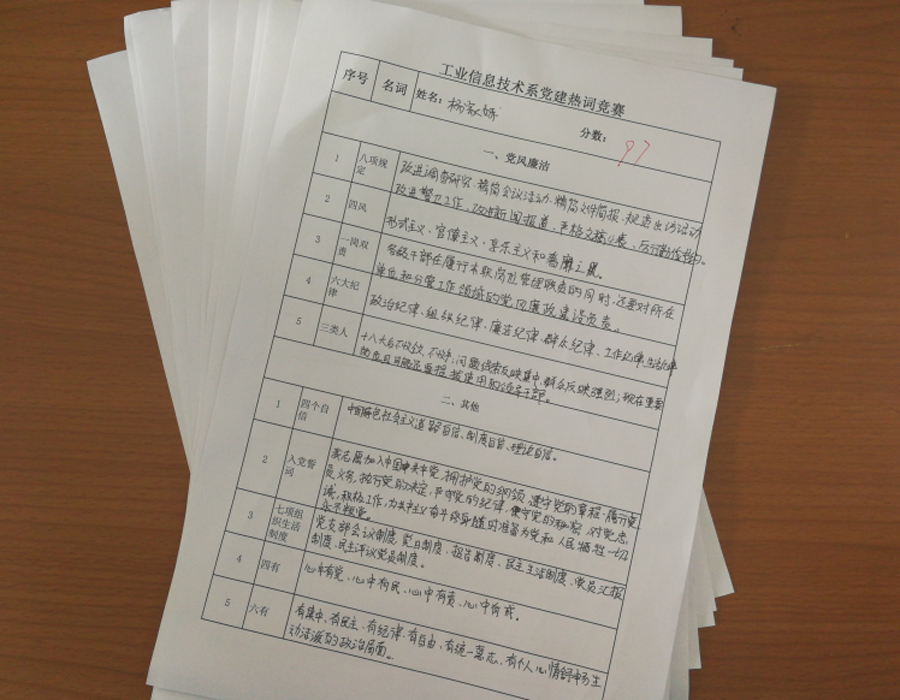 工业信息技术系党建热词竞赛
序号 名词 姓名：杨淑娇 分数：97
一、党风廉洁
1 八项规定 改进调查研究、精简会议活动、精简文件简报、规范出访活动
改进警卫工作、改进新闻报道、严格文稿发表、厉行勤俭节约。
2 四风 形式主义、官僚主义、享乐主义和奢靡之风。
3 一岗双责 各级干部在履行本职岗位管理职责的同时，还要对所在
单位和分管工作领域的党风廉政建设负责。
4 六大纪律 政治纪律、组织纪律、廉洁纪律、群众纪律、工作纪律、生活纪律
5 三类人 十八大后不收敛、不收手，问题线索反映集中、群众反映强烈；现在重要
岗位且可能还要提拔使用的领导干部。
二、其他
1 四个自信 中国特色社会主义道路自信、制度自信、理论自信。
2 入党誓词 我志愿加入中国共产党，拥护党的纲领，遵守党的章程，履行党
员义务，执行党的决定，严守党的纪律，保守党的秘密，对党忠
诚，积极工作，为共产主义奋斗终身，随时准备为党和人民牺牲一切
永不叛党。
3 七项组织生活制度 党支部会议制度、党日制度、报告制度、民主生活制度、党员汇报
制度、民主评议党员制度。
4 四有 心中有党、心中有民、心中有责、心中有戒。
5 六有 有集中、有民主、有纪律、有自由、有统一意志、有个人心情舒畅生
动活泼的政治局面。